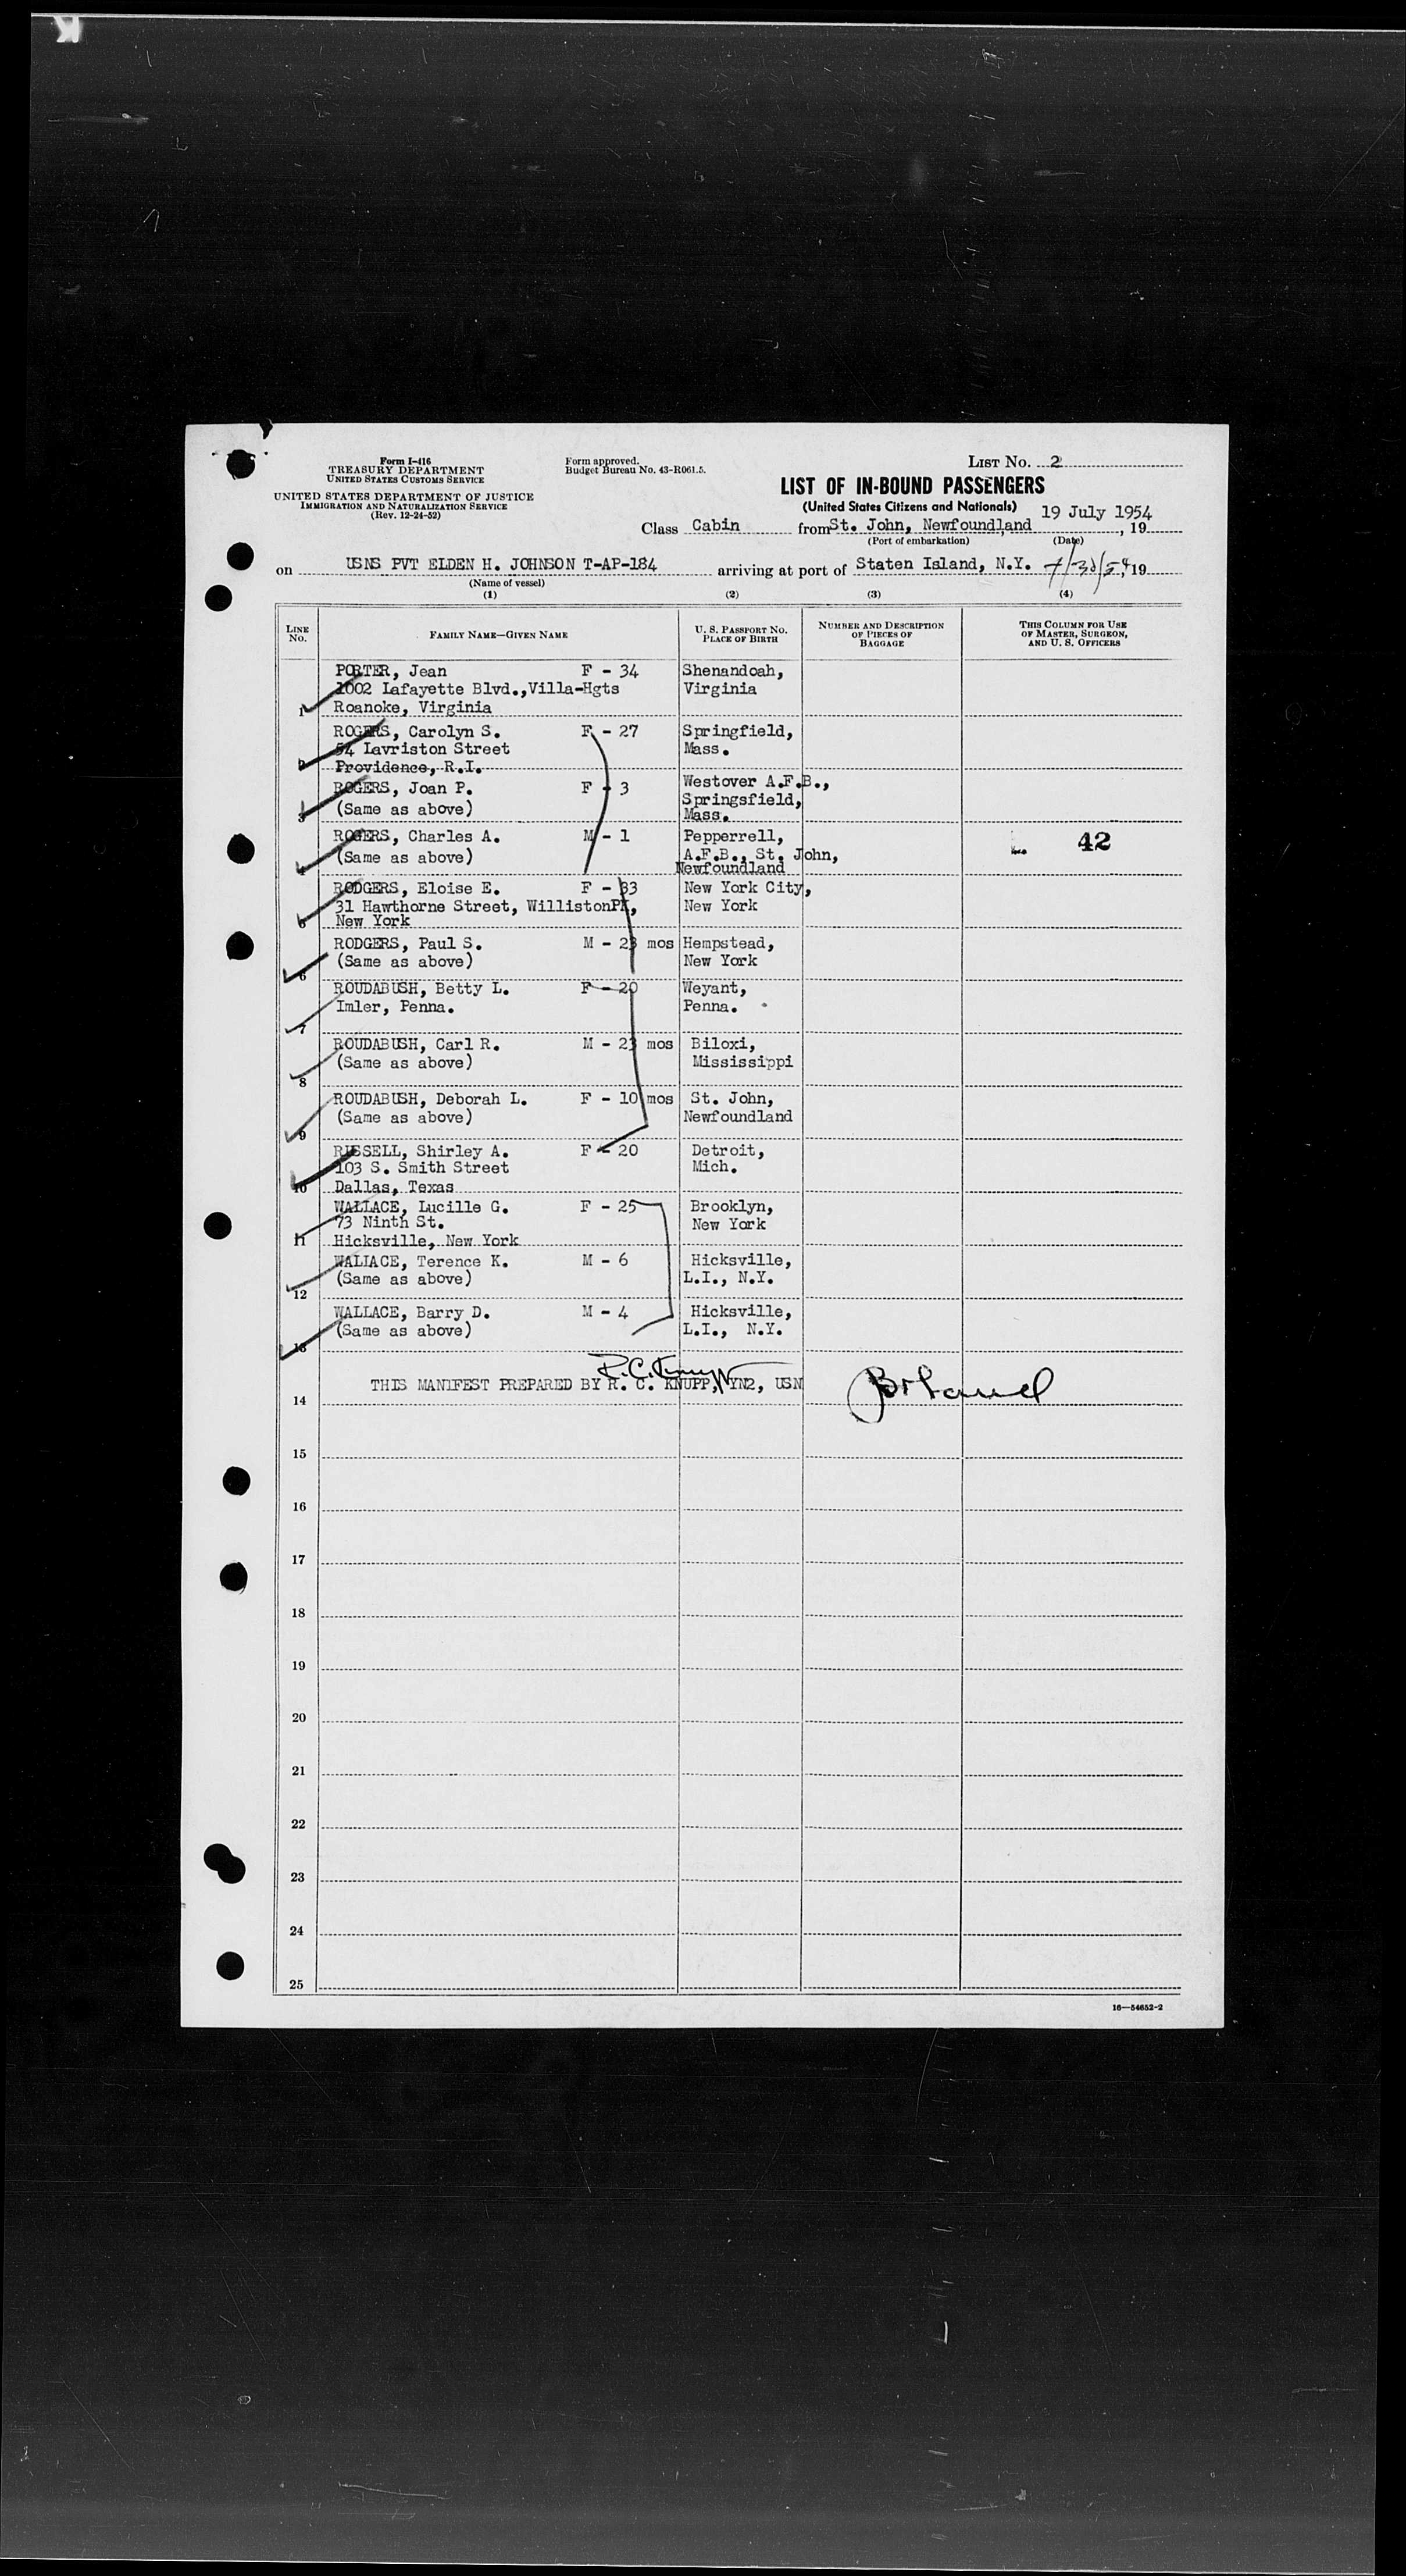 Form I-416
TREASURY DEPARTMENT
UNITED STATES CUSTOMS SERVICE
UNITED STATES DEPARTMENT OF JUSTICE
IMMIGRATION AND NATURALIZATION SERVICE
(Rev. 12-24-52)
Form approved.
Budget Bureau No. 43-R061.5.
LIST No. 2
LIST OF IN-BOUND PASSENGERS
(United States Citizens and Nationals)
Class Cabin from St. John, Newfoundland 19 July 1954, 19
(Port of embarkation) (Date)
on USNS PVT ELDEN H. JOHNSON T-AP-184 arriving at port of Staten Island, N.Y. , 19
(Name of vessel)
(1) (2) (3) (4)
LINE No. FAMILY NAME—GIVEN NAME U. S. PASSPORT No. PLACE OF BIRTH NUMBER AND DESCRIPTION OF PIECES OF BAGGAGE THIS COLUMN FOR USE OF MASTER, SURGEON, AND U. S. OFFICERS
PORTER, Jean F - 34 Shenandoah,
1002 Lafayette Blvd.,Villa-Hgts Virginia
1 Roanoke, Virginia
ROGERS, Carolyn S. F - 27 Springfield,
54 Lavriston Street Mass.
2 Providence, R.I.
ROGERS, Joan P. F - 3 Westover A.F.B.,
(Same as above) Springsfield,
3 Mass.
ROGERS, Charles A. M - 1 Pepperrell,
(Same as above) A.F.B., St. John, 42
4 Newfoundland
RODGERS, Eloise E. F - 33 New York City,
31 Hawthorne Street, WillistonPK, New York
5 New York
RODGERS, Paul S. M - 23 mos Hempstead,
(Same as above) New York
6
ROUDABUSH, Betty L. F - 20 Weyant,
Imler, Penna. Penna.
7
ROUDABUSH, Carl R. M - 23 mos Biloxi,
(Same as above) Mississippi
8
ROUDABUSH, Deborah L. F - 10 mos St. John,
(Same as above) Newfoundland
9
RUSSELL, Shirley A. F - 20 Detroit,
103 S. Smith Street Mich.
10 Dallas, Texas
WALLACE, Lucille G. F - 25 Brooklyn,
73 Ninth St. New York
11 Hicksville, New York
WALLACE, Terence K. M - 6 Hicksville,
(Same as above) L.I., N.Y.
12
WALLACE, Barry D. M - 4 Hicksville,
(Same as above) L.I., N.Y.
13
R.C. Knupp
THIS MANIFEST PREPARED BY R. C. KNUPP, YN2, USN
14
15
16
17
18
19
20
21
22
23
24
25
16—54652-2